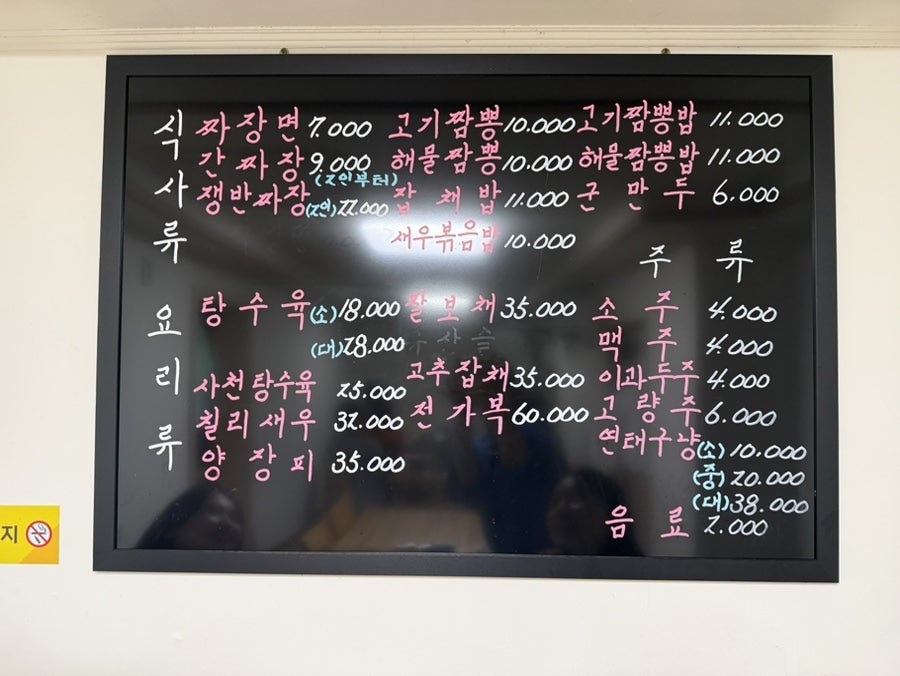 식사류
짜장면 7.000 고기짬뽕 10.000 고기짬뽕밥 11.000
간짜장 9.000 해물짬뽕 10.000 해물짬뽕밥 11.000
(2인부터)
쟁반짜장 (2인) 22.000 잡채밥 11.000 군만두 6.000
새우볶음밥 10.000
요리류
탕수육 (소) 18.000 팔보채 35.000
(대) 28.000
사천탕수육 25.000 고추잡채 35.000
칠리새우 32.000 전가복 60.000
양장피 35.000
주류
소주 4.000
맥주 4.000
이과두주 4.000
고량주 6.000
연태구냥 (소) 10.000
(중) 20.000
(대) 38.000
음료 2.000
지